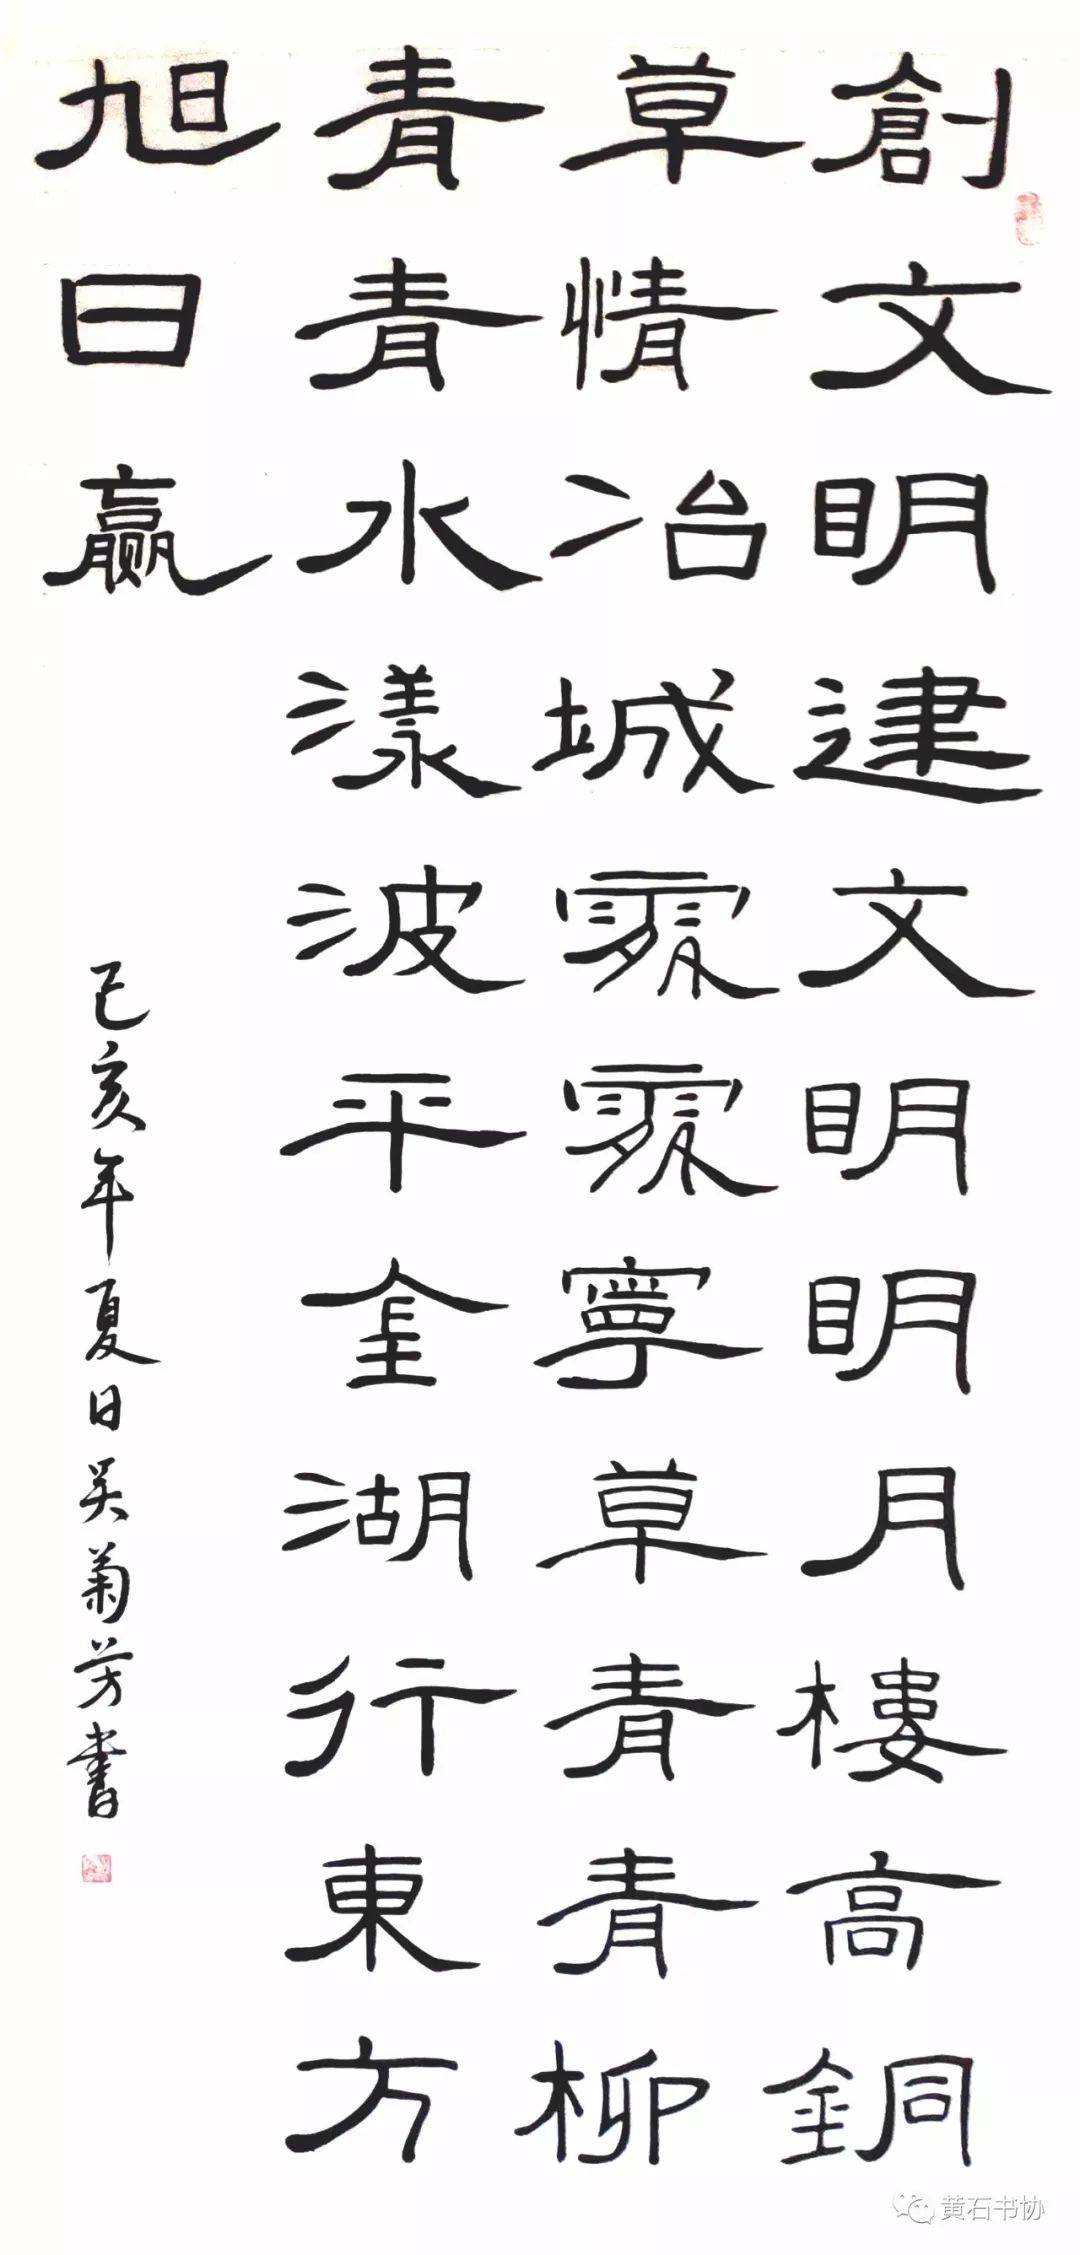 創文明建文明明月樓高銅
草情冶城處處寧草青青柳
青青水漾波平金湖行東方
旭日赢
己亥年夏日吴菊芳書
黄石书协